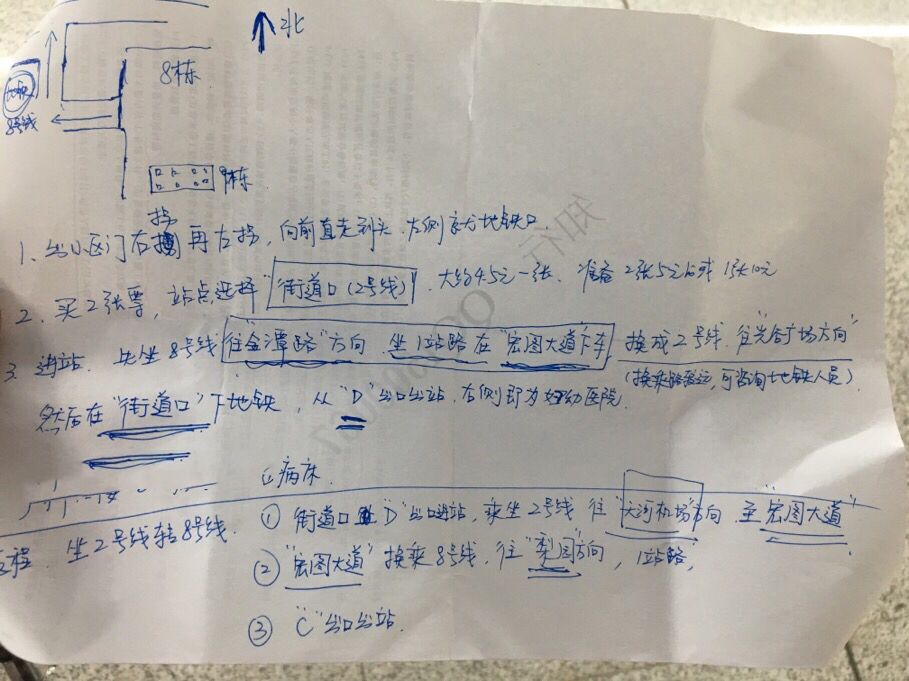 北
8栋
地铁
8号线
9栋
拐
1、出小区门右再左拐，向前直走到头，左侧就为地铁口
2、买2张票，站点选择"街道口(2号线)"，大约4.5元一张、准备2张5元的或1张10元
3、进站、先坐8号线往"金潭路"方向、坐1站路在"宏图大道"下车，换成2号线、往"光谷广场方向"
(换乘路远，可咨询地铁人员)
然后在"街道口"下地铁，从"D"出口出站、左侧即为妇幼医院.
病床
返程、坐2号线转8号线.
① 街道口"D"出口进站，乘坐2号线往"天河机场"方向至"宏图大道"
② "宏图大道"换乘8号线，往"梨园"方向，1站路，
③ "C"出口出站.